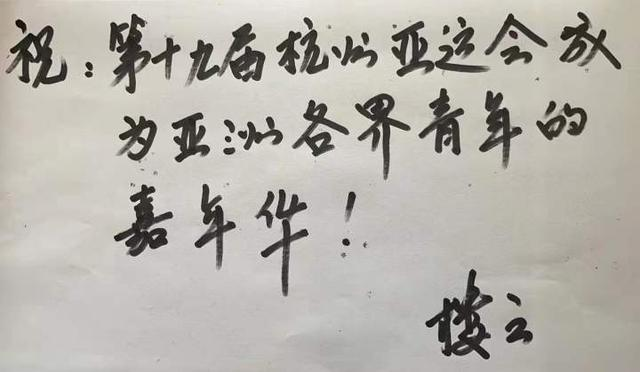 祝：第十九届杭州亚运会成
为亚洲各界青年的
嘉年华！
楼云